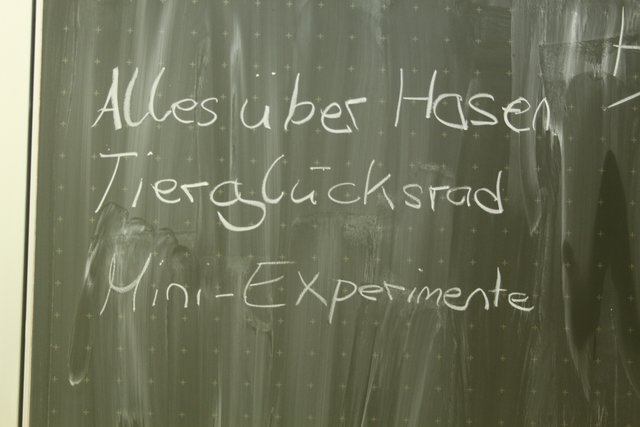 Alles über Hasen
Tierglücksrad
Mini-Experimente